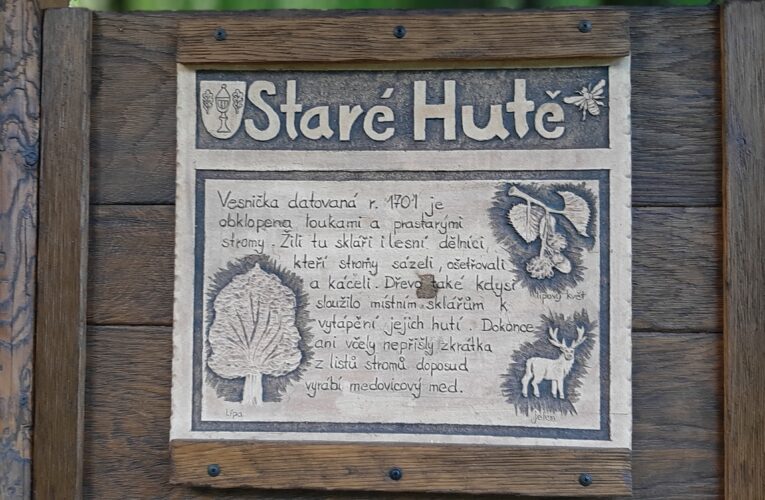 Staré Hutě
Vesnička datovaná r. 1701 je
obklopena loukami a prastarými
stromy. Žili tu skláři i lesní dělníci,
kteří stromy sázeli, ošetřovali
a káceli. Dřevo také kdysi
sloužilo místním sklářům k
vytápění jejich hutí. Dokonce
ani včely nepřišly zkrátka
z listů stromů doposud
vyrábí medovicový med.
lipový květ
Lípa
jelen